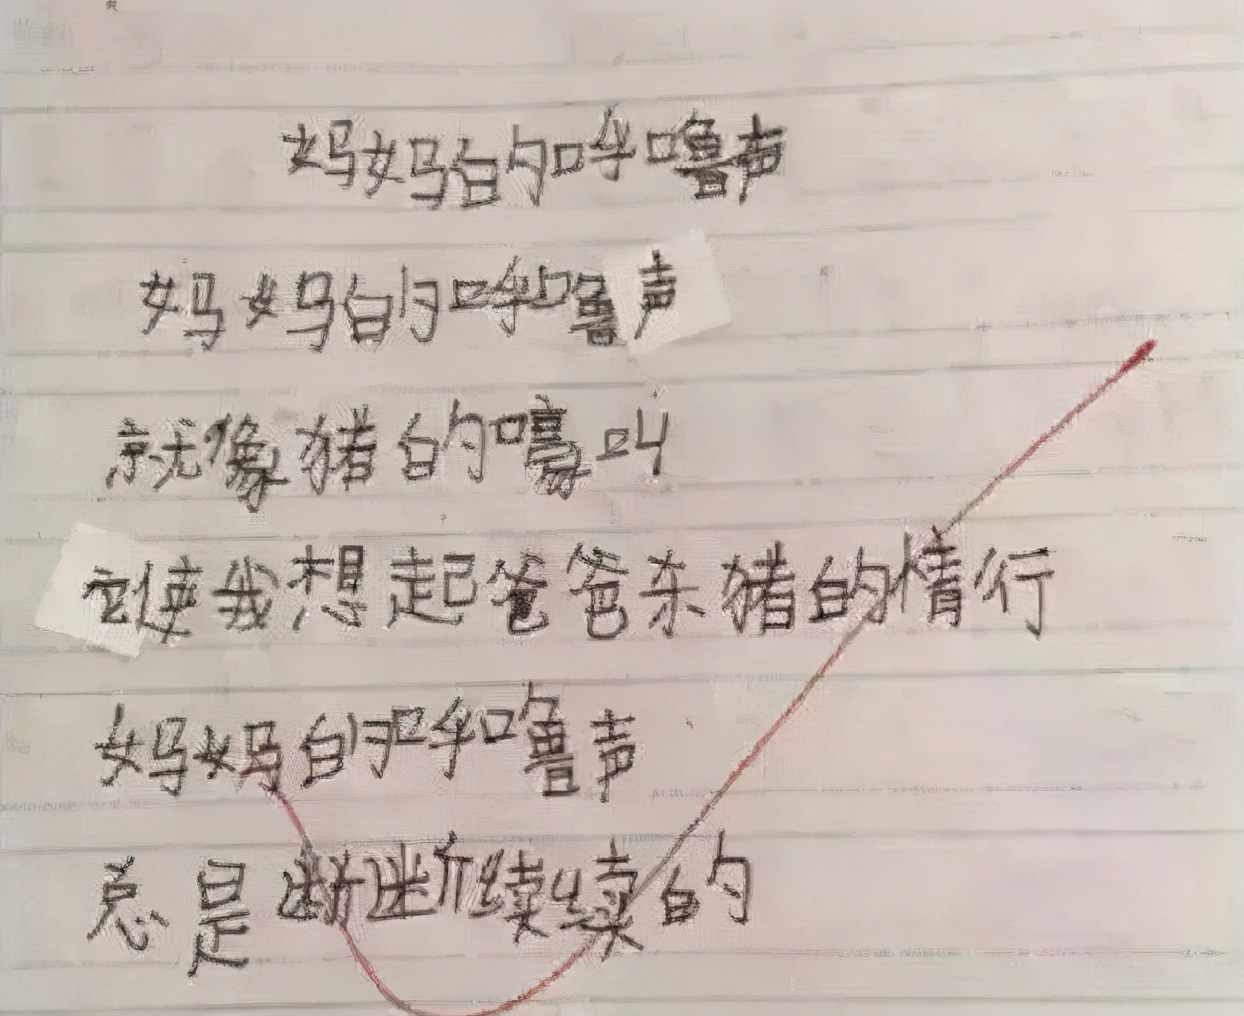 妈妈的呼噜声
妈妈的呼噜声
就像猪的嚎叫
它使我想起爸爸杀猪的情行
妈妈的呼噜声
总是断断续续的